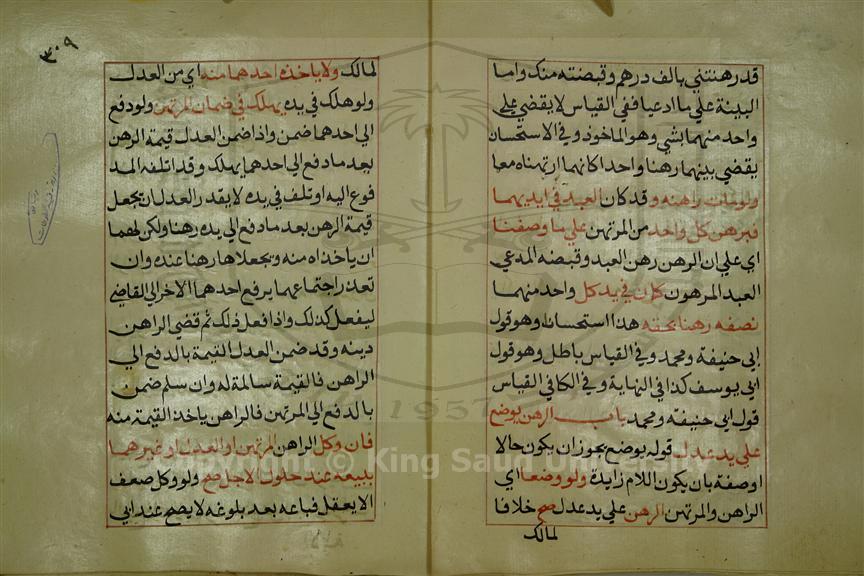 قد رهنتني بالف درهم وقبضته منك واما
البينة علي ما ادعيا ففي القياس لا يقضي علي
واحد منهما بشي وهو الماخوذ وفي الاستحسان
يقضي بينهما رهنا واحدا كانهما ارتهناه معا
ولو مات راهنه وقد كان العبد في ايديهما
فبرهن كل واحد من المرتهن علي ما وصفنا
اي علي ان الرهن رهن العبد وقبضه المدعي
العبد المرهون كان في يد كل واحد منهما
نصفه رهنا بحقه هذا استحسانا وهو قول
ابي حنيفة ومحمد وفي القياس باطل وهو قول
ابي يوسف كذا في النهاية وفي الكافي القياس
قول ابي حنيفة ومحمد باب الرهن يوضع
علي يد عدل قوله يوضع يجوز ان يكون حالا
اوصفة بان يكون اللام زايدة ولو وضعا اي
الراهن والمرتهن الرهن علي يد عدل صح خلافا
لمالك
٣٠٩
لمالك ولا ياخذه احدهما منه اي من العدل
ولو هلك في يده يهلك في ضمان المرتهن ولو دفع
الي احدهما ضمن واذا ضمن العدل قيمة الرهن
بعد ما دفع الي احدهما يهلك وقد اتلفه المد
فوع اليه او تلف في يده لا يقدر العدل ان يجعل
قيمة الرهن بعد ما دفع الي يده رهنا ولكن لهما
ان ياخذاه منه ويجعلاها رهنا عنده وان
تعذر اجتماعهما يرفع احدهما الاخر الي القاضي
ليفعل كذلك واذا فعل ذلك ثم قضي الراهن
دينه وقد ضمن العدل القيمة بالدفع الي
الراهن فالقيمة سالمة له وان سلم ضمن
بالدفع الي المرتهن فالراهن ياخذ القيمة منه
فان وكل الراهن المرتهن او العدل او غيرهما
ببيعه عند حلول الاجل صح ولو وكل صعف
الا يعقل فباعه بعد بلوغه لا يصح عند ابي
Copyright © King Saud University
1957